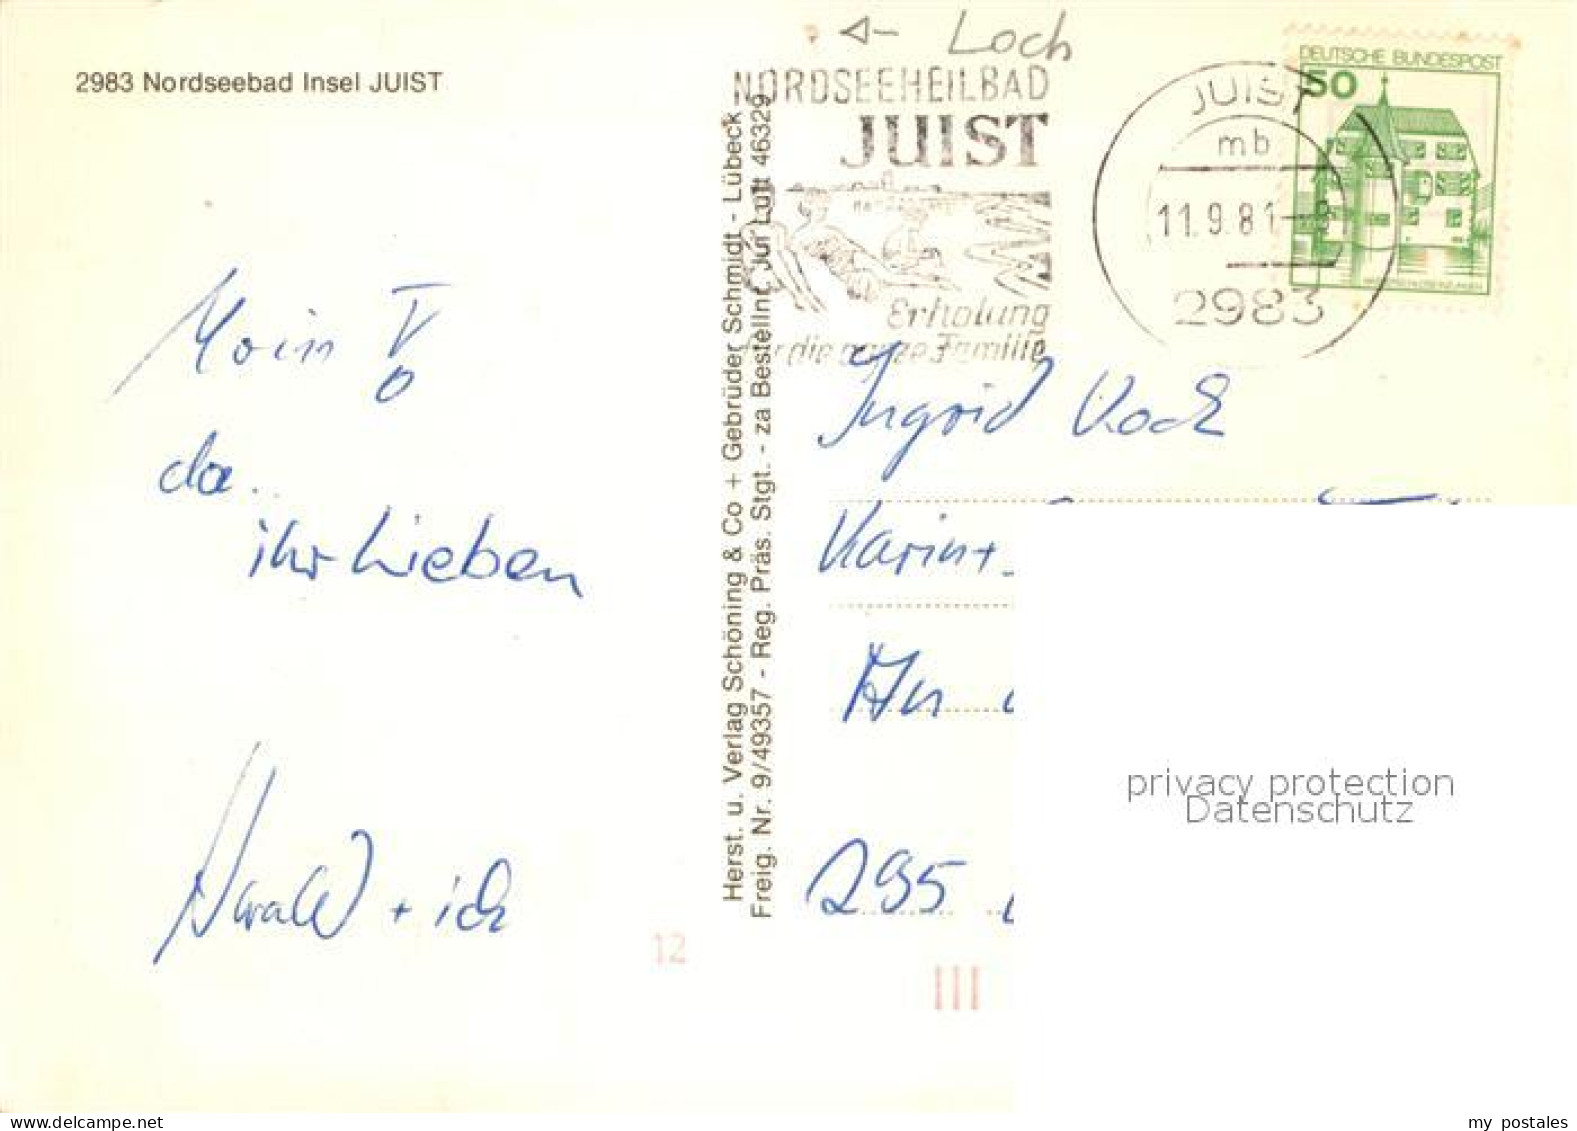 2983 Nordseebad Insel JUIST
Moin
da..
ihr Lieben
+ ich
12
Herst. u. Verlag Schöning & Co + Gebrüder Schmidt - Lübeck
Freig. Nr. 9/49357 - Reg. Präs. Stgt. - za Bestellnr. Jui Luft 46329
Loch
NORDSEEHEILBAD
JUIST
Erholung
für die ganze Familie
JUIST
mb
11.9.81-8
2983
DEUTSCHE BUNDESPOST
50
Ingrid Koch
Karin +
An
295
III
privacy protection
Datenschutz
www.delcampe.net
my postales